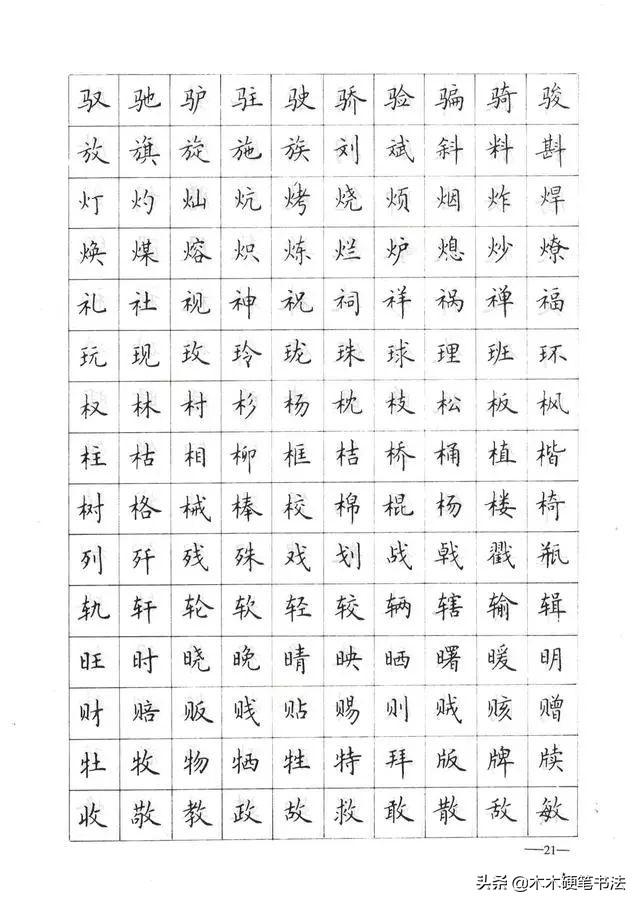 驭 驰 驴 驻 驶 骄 验 骗 骑 骏
放 旗 旋 施 族 刘 斌 斜 料 斟
灯 灼 灿 炕 烤 烧 烦 烟 炸 焊
焕 煤 熔 炽 炼 烂 炉 熄 炒 燎
礼 社 视 神 祝 祠 祥 祸 禅 福
玩 现 玫 玲 珑 珠 球 理 班 环
权 林 村 杉 杨 枕 枝 松 板 枫
柱 枯 相 柳 框 桔 桥 桶 植 楷
树 格 械 棒 校 棉 棍 杨 楼 椅
列 歼 残 殊 戏 划 战 戟 戳 瓶
轨 轩 轮 软 轻 较 辆 辖 输 辑
旺 时 晓 晚 晴 映 晒 曙 暖 明
财 赔 贩 贱 贴 赐 则 贼 赅 赠
牡 牧 物 牺 牲 特 拜 版 牌 牍
收 敬 教 政 故 救 敢 散 敌 敏
—21—
头条 @木木硬笔书法